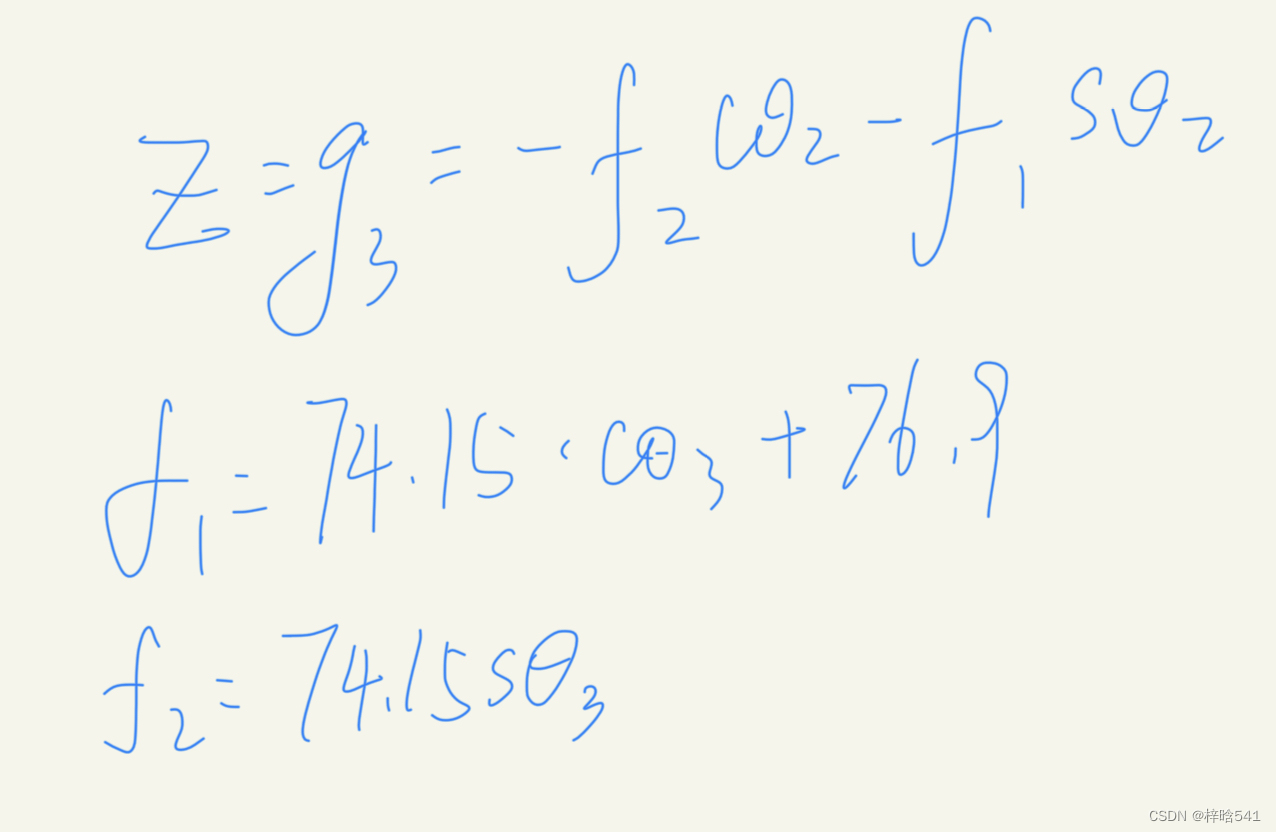 z = g₃ = - f₂ cθ₂ - f₁ sθ₂
f₁ = 74.15 · cθ₃ + 76.9
f₂ = 74.15 sθ₃
CSDN @梓晗541